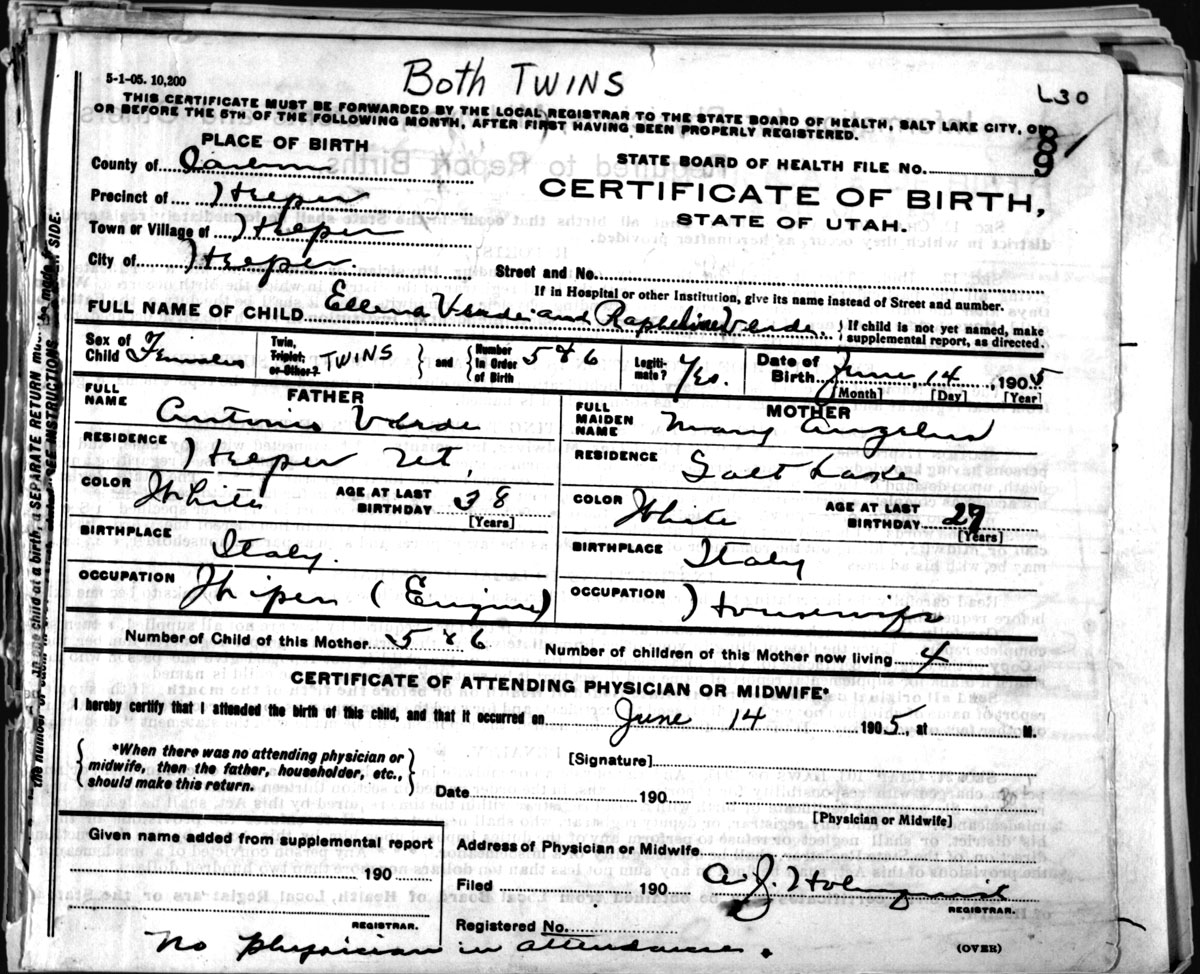 Both TWINS
5-1-05. 10,200
L30
THIS CERTIFICATE MUST BE FORWARDED BY THE LOCAL REGISTRAR TO THE STATE BOARD OF HEALTH, SALT LAKE CITY, ON
OR BEFORE THE 5TH OF THE FOLLOWING MONTH, AFTER FIRST HAVING BEEN PROPERLY REGISTERED.
8
9
PLACE OF BIRTH
STATE BOARD OF HEALTH FILE No.
County of
CERTIFICATE OF BIRTH,
Precinct of Helper
STATE OF UTAH.
Town or Village of Helper
City of Helper
Street and No.
If in Hospital or other Institution, give its name instead of Street and number.
FULL NAME OF CHILD Ellena Verde and Verde
If child is not yet named, make
supplemental report, as directed.
Sex of Child Females
Twin, Triplet, or Other? TWINS
and Number in Order of Birth 5 & 6
Legitimate? Yes.
Date of Birth June, 14, 1905
[Month] [Day] [Year]
FATHER
MOTHER
FULL NAME Antonio Verde
FULL MAIDEN NAME Mary
RESIDENCE Helper Ut,
RESIDENCE Salt Lake
COLOR White AGE AT LAST BIRTHDAY 38 [Years]
COLOR White AGE AT LAST BIRTHDAY 27 [Years]
BIRTHPLACE Italy.
BIRTHPLACE Italy
OCCUPATION Wiper (Engine)
OCCUPATION Housewife
Number of Child of this Mother 5 & 6
Number of children of this Mother now living 4
CERTIFICATE OF ATTENDING PHYSICIAN OR MIDWIFE*
I hereby certify that I attended the birth of this child, and that it occurred on June 14 1905, at M.
*When there was no attending physician or
midwife, then the father, householder, etc.,
should make this return.
[Signature]
Date 190
[Physician or Midwife]
Given name added from supplemental report
190
REGISTRAR.
Address of Physician or Midwife
Filed 190
REGISTRAR.
Registered No.
No physician in attendance.
(OVER)